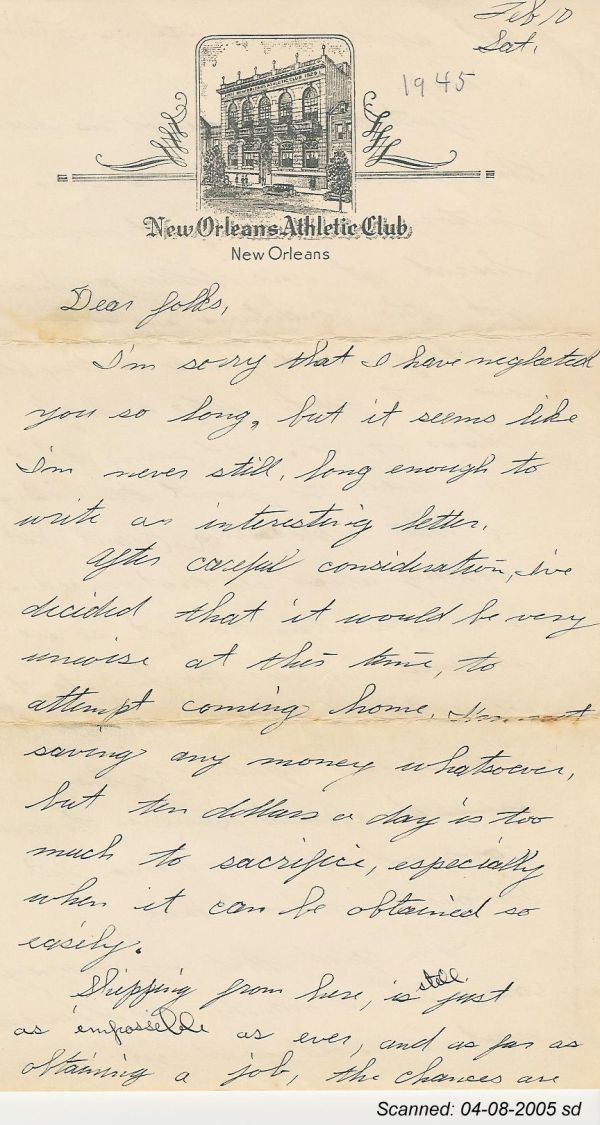 Feb 10
Sat.
1945
New Orleans Athletic Club
New Orleans
Dear folks,
I'm sorry that I have neglected
you so long, but it seems like
I'm never still, long enough to
write an interesting letter.
After careful consideration, I've
decided that it would be very
unwise at this time, to
attempt coming home. I'm not
saving any money whatsoever,
but ten dollars a day is too
much to sacrifice, especially
when it can be obtained so
easily.
Shipping from here, is still just
as impossible as ever, and as far as
obtaining a job, the chances are
Scanned: 04-08-2005 sd